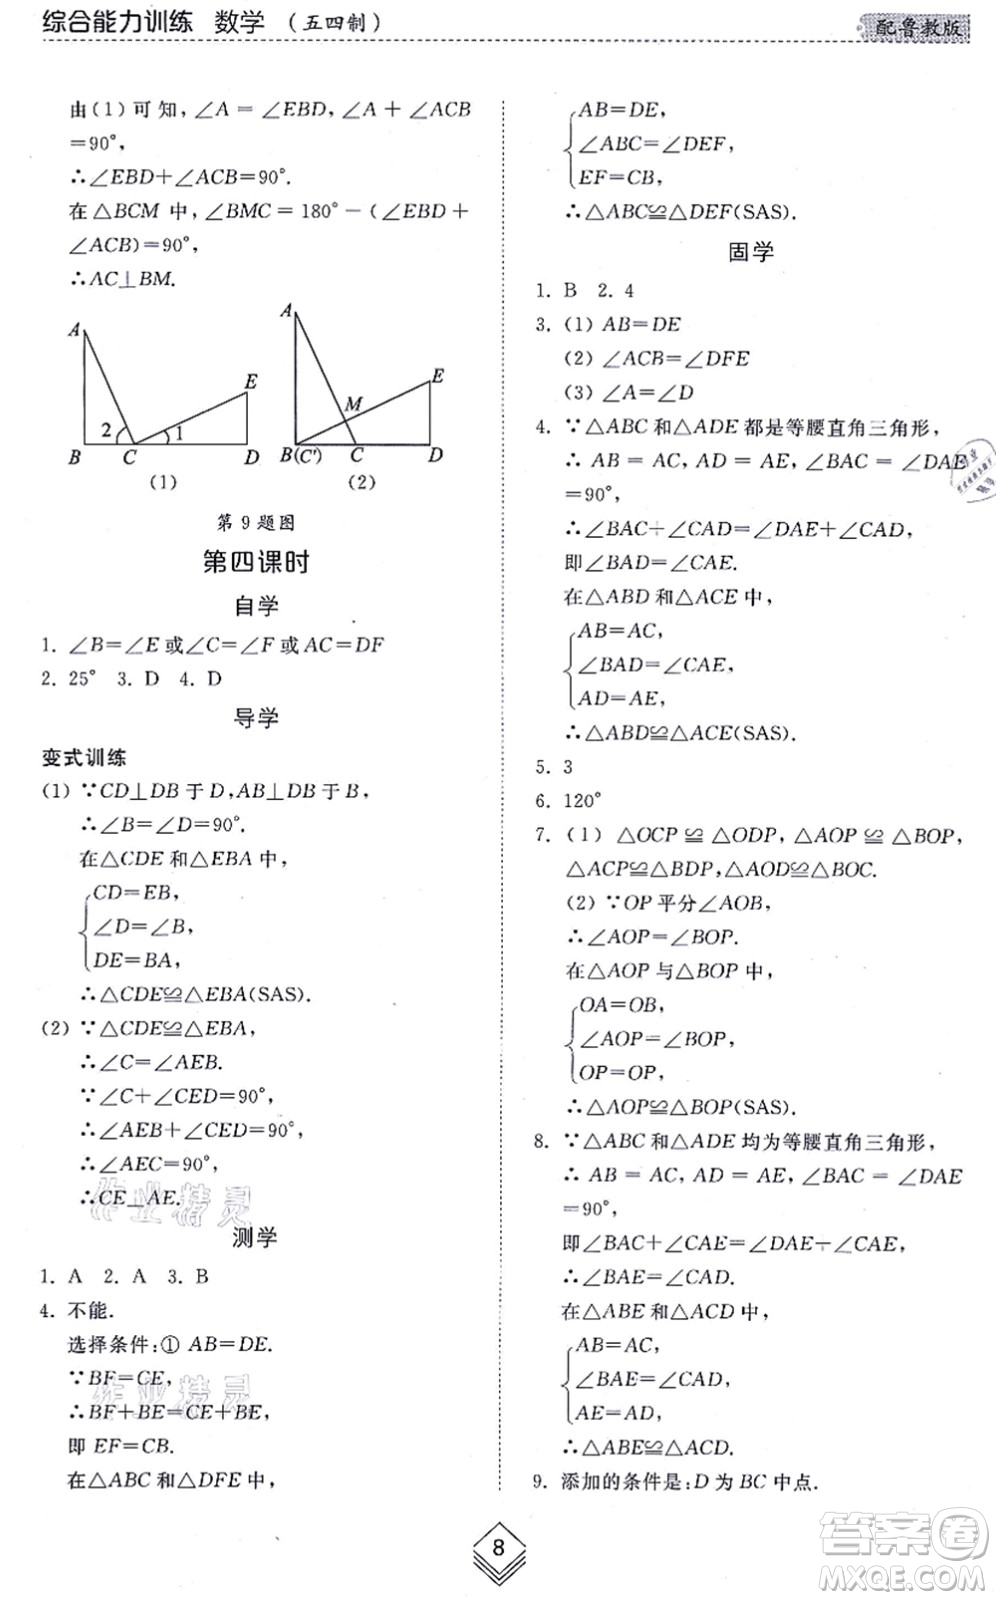 综合能力训练 数学 （五四制）
配鲁教版
由(1)可知,∠A=∠EBD,∠A+∠ACB
=90°,
∴∠EBD+∠ACB=90°.
在△BCM中,∠BMC=180°-(∠EBD+
∠ACB)=90°,
∴AC⊥BM.
A
E
2
1
B
C
D
(1)
A
E
M
B(C')
C
D
(2)
第9题图
第四课时
自学
1. ∠B=∠E或∠C=∠F或AC=DF
2. 25° 3. D 4. D
导学
变式训练
(1) ∵CD⊥DB于D,AB⊥DB于B,
∴∠B=∠D=90°.
在△CDE和△EBA中,
CD=EB,
∠D=∠B,
DE=BA,
∴△CDE≌△EBA(SAS).
(2) ∵△CDE≌△EBA,
∴∠C=∠AEB.
∵∠C+∠CED=90°,
∴∠AEB+∠CED=90°,
∴∠AEC=90°,
∴CE⊥AE.
测学
1. A 2. A 3. B
4. 不能.
选择条件:① AB=DE.
∵BF=CE,
∴BF+BE=CE+BE,
即 EF=CB.
在△ABC和△DFE中,
AB=DE,
∠ABC=∠DEF,
EF=CB,
∴△ABC≌△DEF(SAS).
固学
1. B 2. 4
3. (1) AB=DE
(2) ∠ACB=∠DFE
(3) ∠A=∠D
4. ∵△ABC和△ADE都是等腰直角三角形,
∴ AB = AC, AD = AE, ∠BAC = ∠DAE
=90°,
∴∠BAC+∠CAD=∠DAE+∠CAD,
即∠BAD=∠CAE.
在△ABD和△ACE中,
AB=AC,
∠BAD=∠CAE,
AD=AE,
∴△ABD≌△ACE(SAS).
5. 3
6. 120°
7. (1) △OCP≌△ODP,△AOP≌△BOP,
△ACP≌△BDP,△AOD≌△BOC.
(2) ∵OP平分∠AOB,
∴∠AOP=∠BOP.
在△AOP与△BOP中,
OA=OB,
∠AOP=∠BOP,
OP=OP,
∴△AOP≌△BOP(SAS).
8. ∵△ABC和△ADE均为等腰直角三角形,
∴ AB = AC, AD = AE, ∠BAC = ∠DAE
=90°,
即∠BAC+∠CAE=∠DAE+∠CAE,
∴∠BAE=∠CAD.
在△ABE和△ACD中,
AB=AC,
∠BAE=∠CAD,
AE=AD,
∴△ABE≌△ACD.
9. 添加的条件是:D为BC中点.
作业精灵
作业精灵
8
答案卷
MXQE.COM